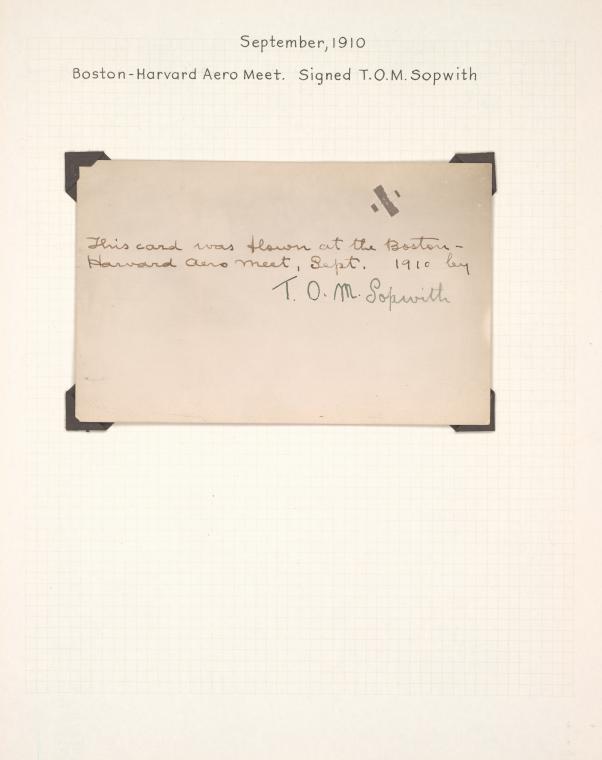 September, 1910
Boston-Harvard Aero Meet. Signed T.O.M. Sopwith
This card was flown at the Boston-
Harvard Aero meet, Sept. 1910 by
T. O. M. Sopwith